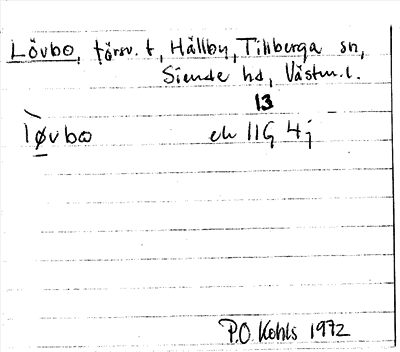 Lövbo, försv. t, Hällby, Tillberga sn,
Siende hd, Västm.l.
13
løvbo ek 11G 4j
P.O. Kohls 1972